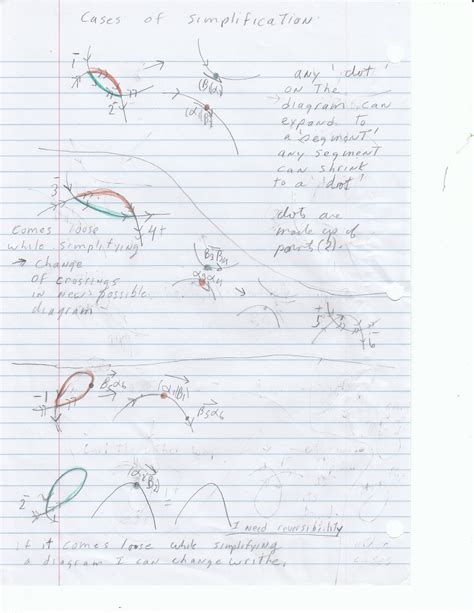 Cases of simplification
1-
2-
(β1α2)
(α1β2)
any 'dot'
on the
diagram can
expand to
a 'segment'
any segment
can shrink
to a 'dot'
dots are
made up of
points(2).
3-
4+
comes loose
while simplifying
→ change
of crossings
in new possible
diagram
β3β4
α3α4
5+
6-
-1
β5α6
(α1β1)
β5α6
2-
(α2β2)
=
I need reversibility
if it comes loose while simplifying
a diagram I can change writhe,